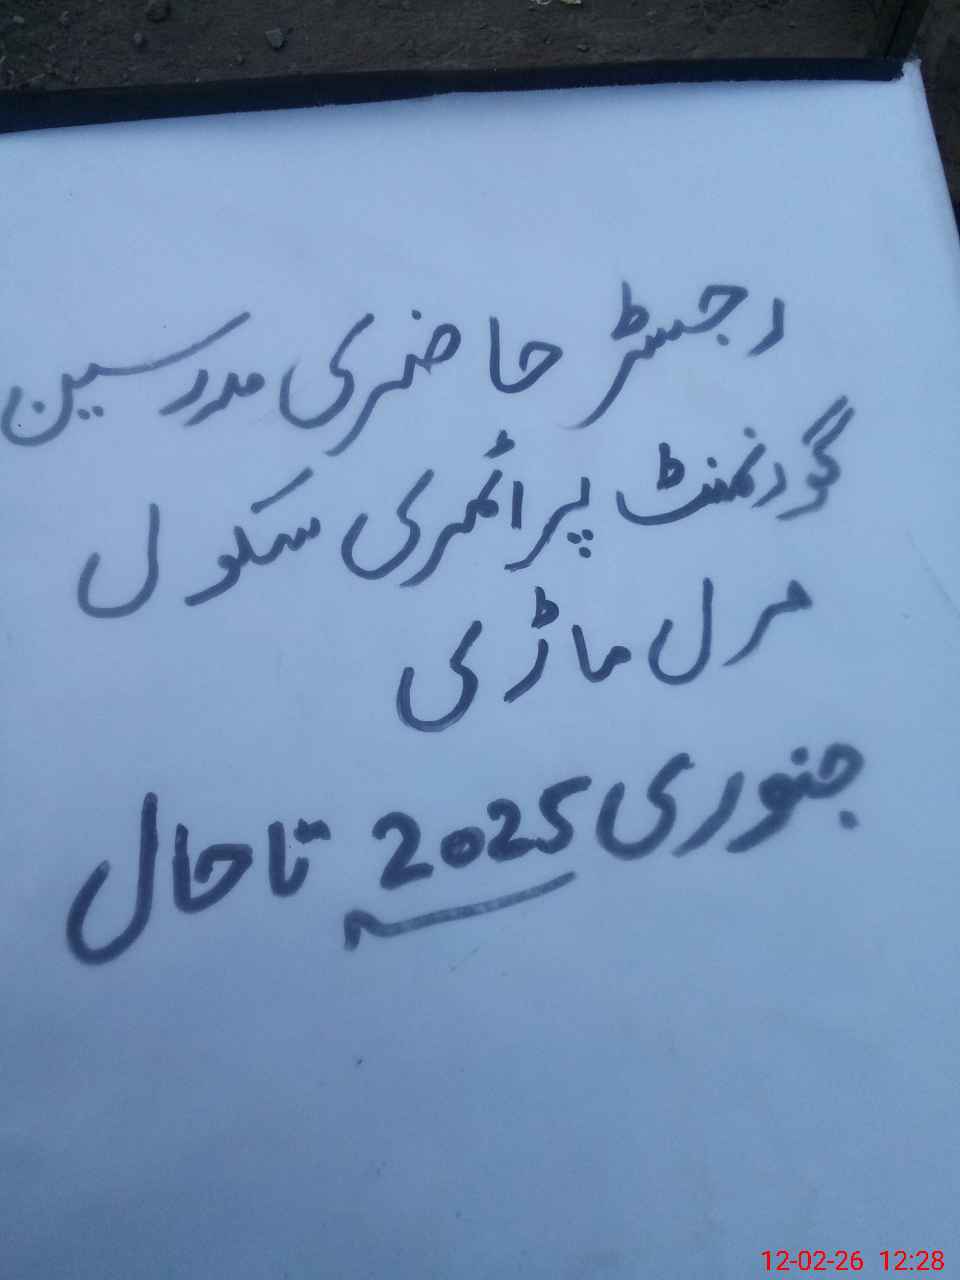 رجسٹر حاضری مدرسین
گورنمنٹ پرائمری سکول
مرل ماڑی
جنوری 2025 تا حال
12-02-26 12:28